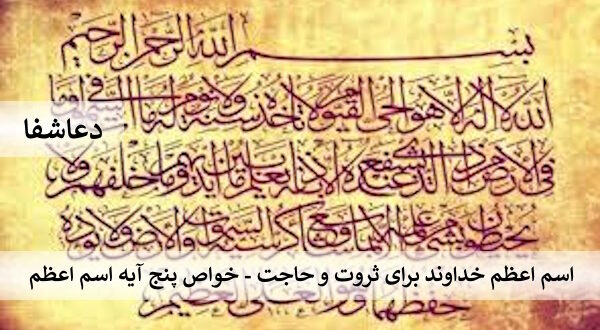 بسم الله الرحمن الرحيم
الله لا اله الا هو الحي القيوم لا تاخذه سنة ولا نوم له ما في السموات وما
دعاشفا
في الارض من ذا الذي يشفع عنده الا باذنه يعلم ما بين ايديهم وما خلفهم ولا
يحيطون بشيء من علمه الا بما شاء وسع كرسيه السموات والارض ولا يؤده
اسم اعظم خداوند برای ثروت و حاجت - خواص پنج آیه اسم اعظم
حفظهما وهو العلي العظيم